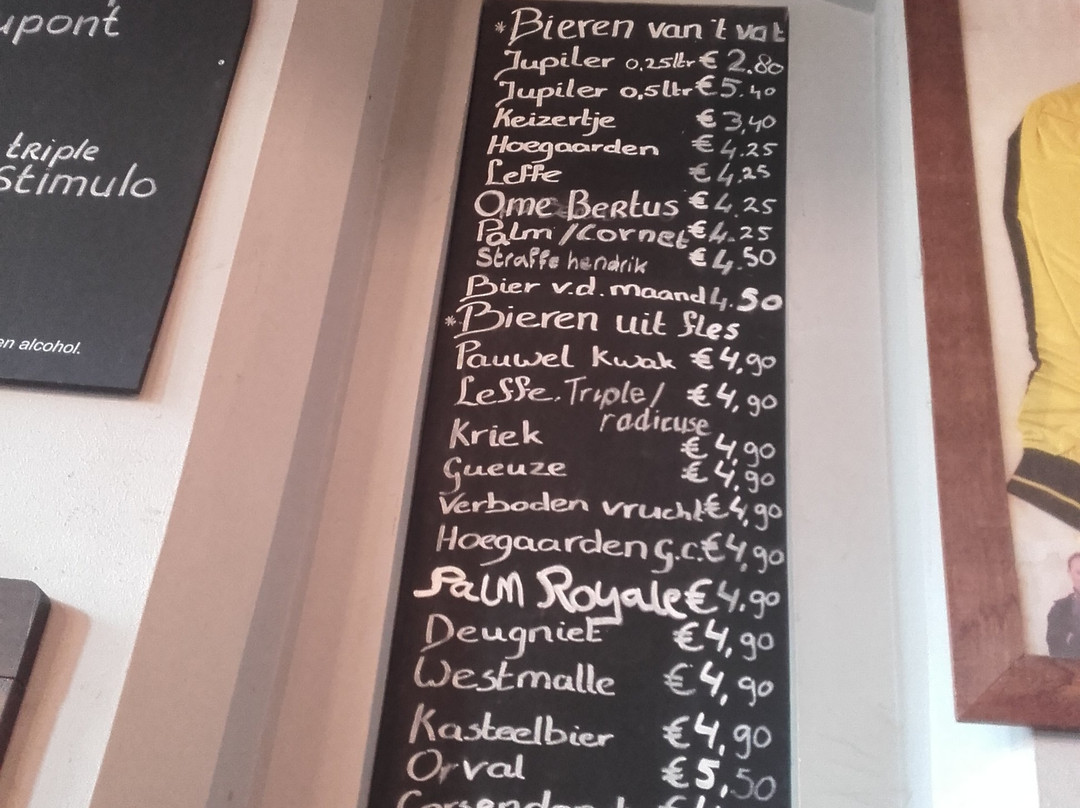 upont
triple
Stimulo
en alcohol.
*Bieren van 't vat
Jupiler 0,25ltr € 2.80
Jupiler 0,5ltr € 5.40
Keizertje € 3,40
Hoegaarden € 4.25
Leffe € 4,25
Ome Bertus € 4.25
Palm/Cornet € 4.25
Straffe hendrik € 4.50
Bier v.d. maand 4.50
*Bieren uit fles
Pauwel Kwak € 4,90
Leffe. Triple/ € 4,90
radieuse
Kriek € 4,90
Gueuze € 4,90
Verboden vrucht € 4,90
Hoegaarden g.c. € 4,90
Palm Royale € 4.90
Deugniet € 4,90
Westmalle € 4,90
Kasteelbier € 4,90
Orval € 5,50